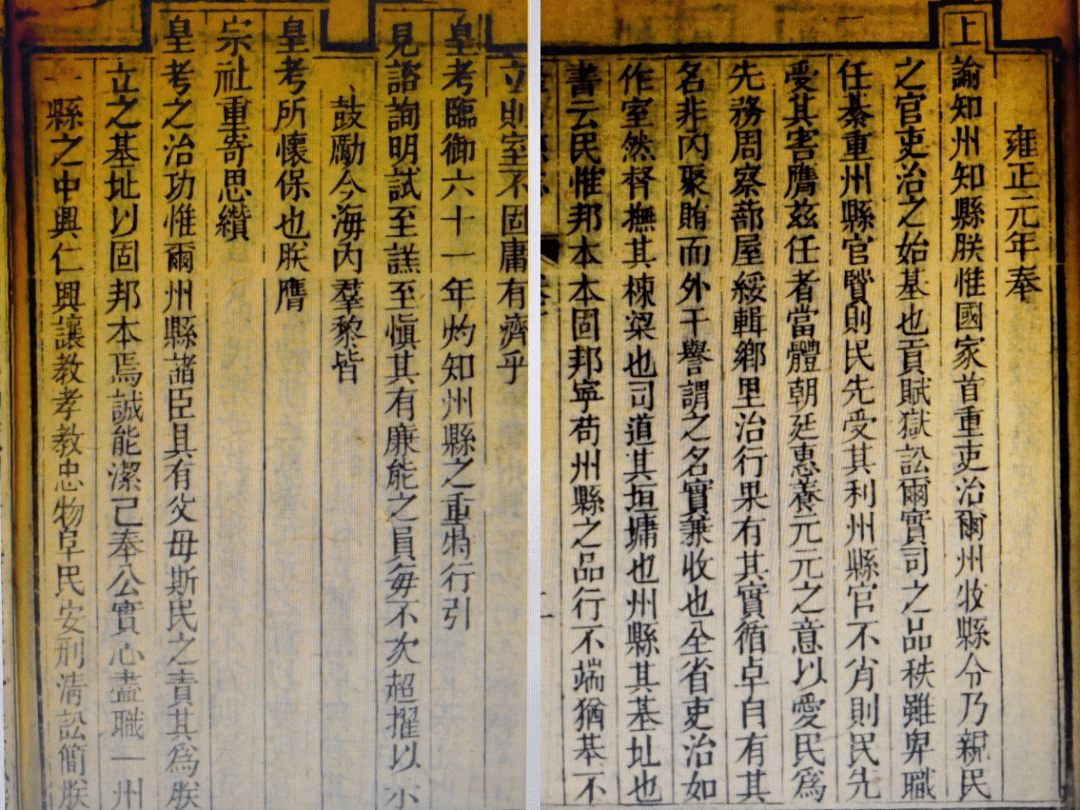 雍正元年奉
上
諭知州知縣朕惟國家首重吏治爾州牧縣令乃親民
之官吏治之始基也貢賦獄訟爾實司之品秩雖卑職
任綦重州縣官賢則民先受其利州縣官不肖則民先
受其害膺茲任者當體朝廷惠養元元之意以愛民為
先務周察蔀屋綏輯鄉里治行果有其實循卓自有其
名非內聚賄而外干譽謂之名實兼收也全省吏治如
作室然督撫其棟梁也司道其垣墉也州縣其基址也
書云民惟邦本本固邦寧苟州縣之品行不端猶基不
立則室不固庸有濟乎
皇考臨御六十一年灼知州縣之重特行引
見諮詢明試至謹至慎其有廉能之員每不次超擢以示
鼓勵今海內羣黎皆
皇考所懷保也朕膺
宗社重寄思纘
皇考之治功惟爾州縣諸臣具有父母斯民之責其為朕
立之基址以固邦本焉誠能潔己奉公實心盡職一州
一縣之中興仁興讓教孝教忠物阜民安刑清訟簡朕